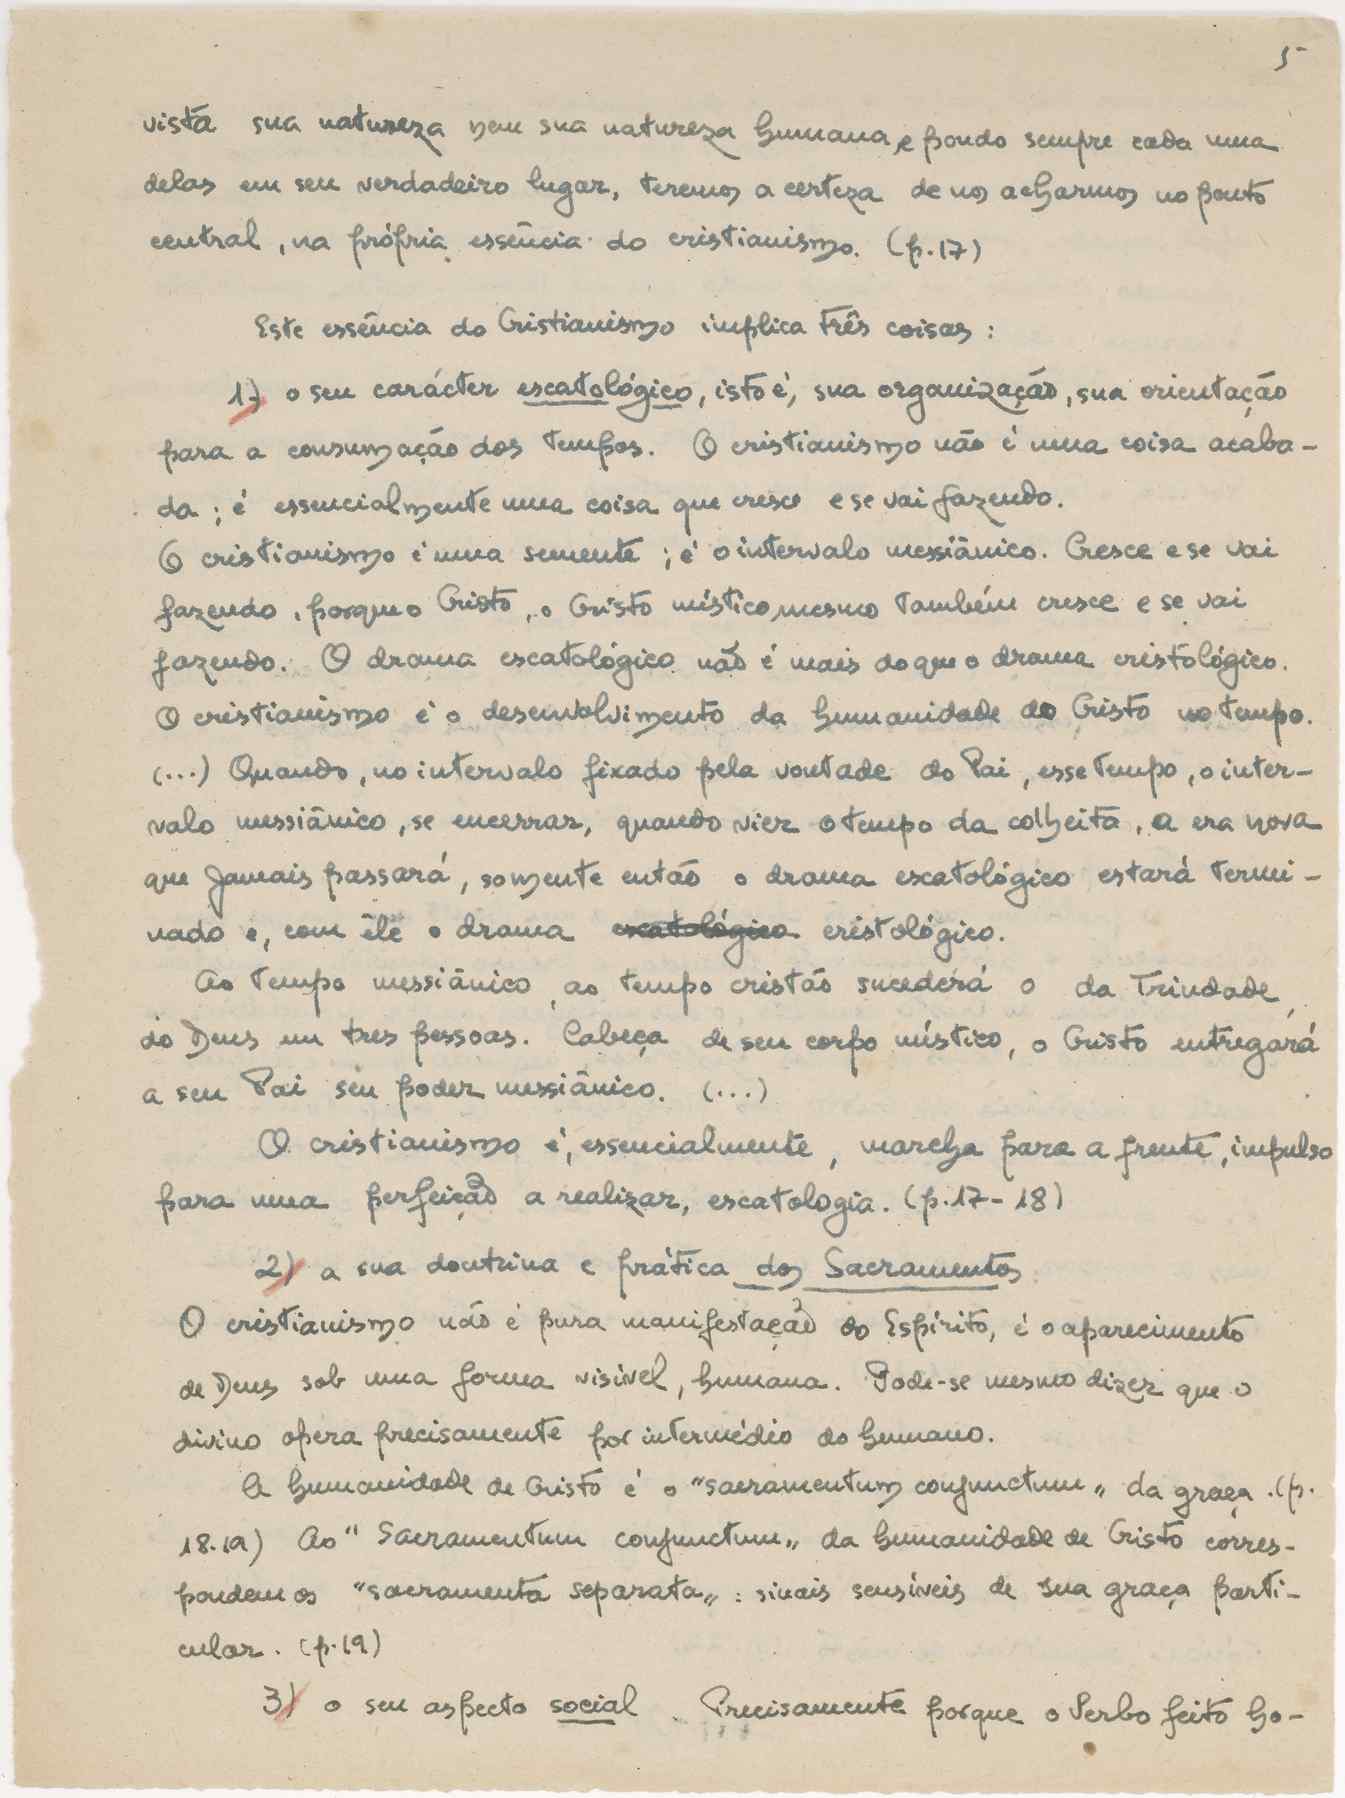 5
vista sua natureza nem sua natureza humana, e pondo sempre cada uma
delas em seu verdadeiro lugar, teremos a certeza de nos acharmos no ponto
central, na própria essência do cristianismo. (p.17)
Este essência do Cristianismo implica três coisas:
1) o seu carácter escatológico, isto é, sua organização, sua orientação
para a consumação dos tempos. O cristianismo não é uma coisa acaba-
da; é essencialmente uma coisa que cresce e se vai fazendo.
O cristianismo é uma semente; é o intervalo messiânico. Cresce e se vai
fazendo, porque o Cristo, o Cristo místico, mesmo também cresce e se vai
fazendo. O drama escatológico não é mais do que o drama cristológico.
O cristianismo é o desenvolvimento da humanidade do Cristo no tempo.
(...) Quando, no intervalo fixado pela vontade do Pai, esse tempo, o inter-
valo messiânico, se encerrar, quando vier o tempo da colheita, a era nova
que jamais passará, somente então o drama escatológico estará termi-
nado e, com êle o drama escatológico cristológico.
Ao tempo messiânico, ao tempo cristão sucederá o da Trindade,
do Deus em tres pessoas. Cabeça de seu corpo místico, o Cristo entregará
a seu Pai seu poder messiânico. (...)
O cristianismo é, essencialmente, marcha para a frente, impulso
para uma perfeição a realizar, escatologia. (p.17-18)
2) a sua doutrina e prática dos Sacramentos
O cristianismo não é pura manifestação do Espírito, é o aparecimento
de Deus sob uma forma visível, humana. Pode-se mesmo dizer que o
divino opera precisamente por intermédio do humano.
A humanidade de Cristo é o "sacramentum conjunctum" da graça. (p.
18.19) Ao "Sacramentum conjunctum" da humanidade de Cristo corres-
pondem os "sacramenta separata": sinais sensíveis de sua graça parti-
cular. (p.19)
3) o seu aspecto social. Precisamente porque o Verbo feito ho-